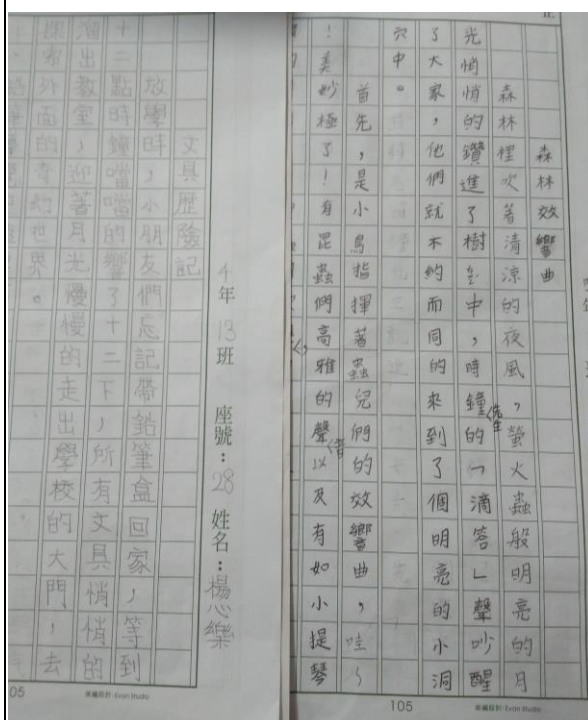 森林效響曲
森林裡吹著清涼的夜風，螢火蟲般明亮的月
光悄悄的鑽進了樹中，時鐘先生的「滴答」聲吵醒
了大家，他們就不約而同的來到了個明亮的小洞
穴中。
首先，是小鳥指揮著蟲兒們的效響曲，哇～
！美妙極了！有昆蟲們高雅的聲音以及有如小提琴
105
美編設計：Evan Studio
年13班 座號：28 姓名：楊心樂
文具歷險記
放學時，小朋友們忘記帶鉛筆盒回家，等到
十二點時鐘噹噹的響了十二下，所有文具悄悄的
溜出教室，迎著月光慢慢的走出學校的大門，去
探索外面的奇幻世界。
05
美編設計：Evan Studio